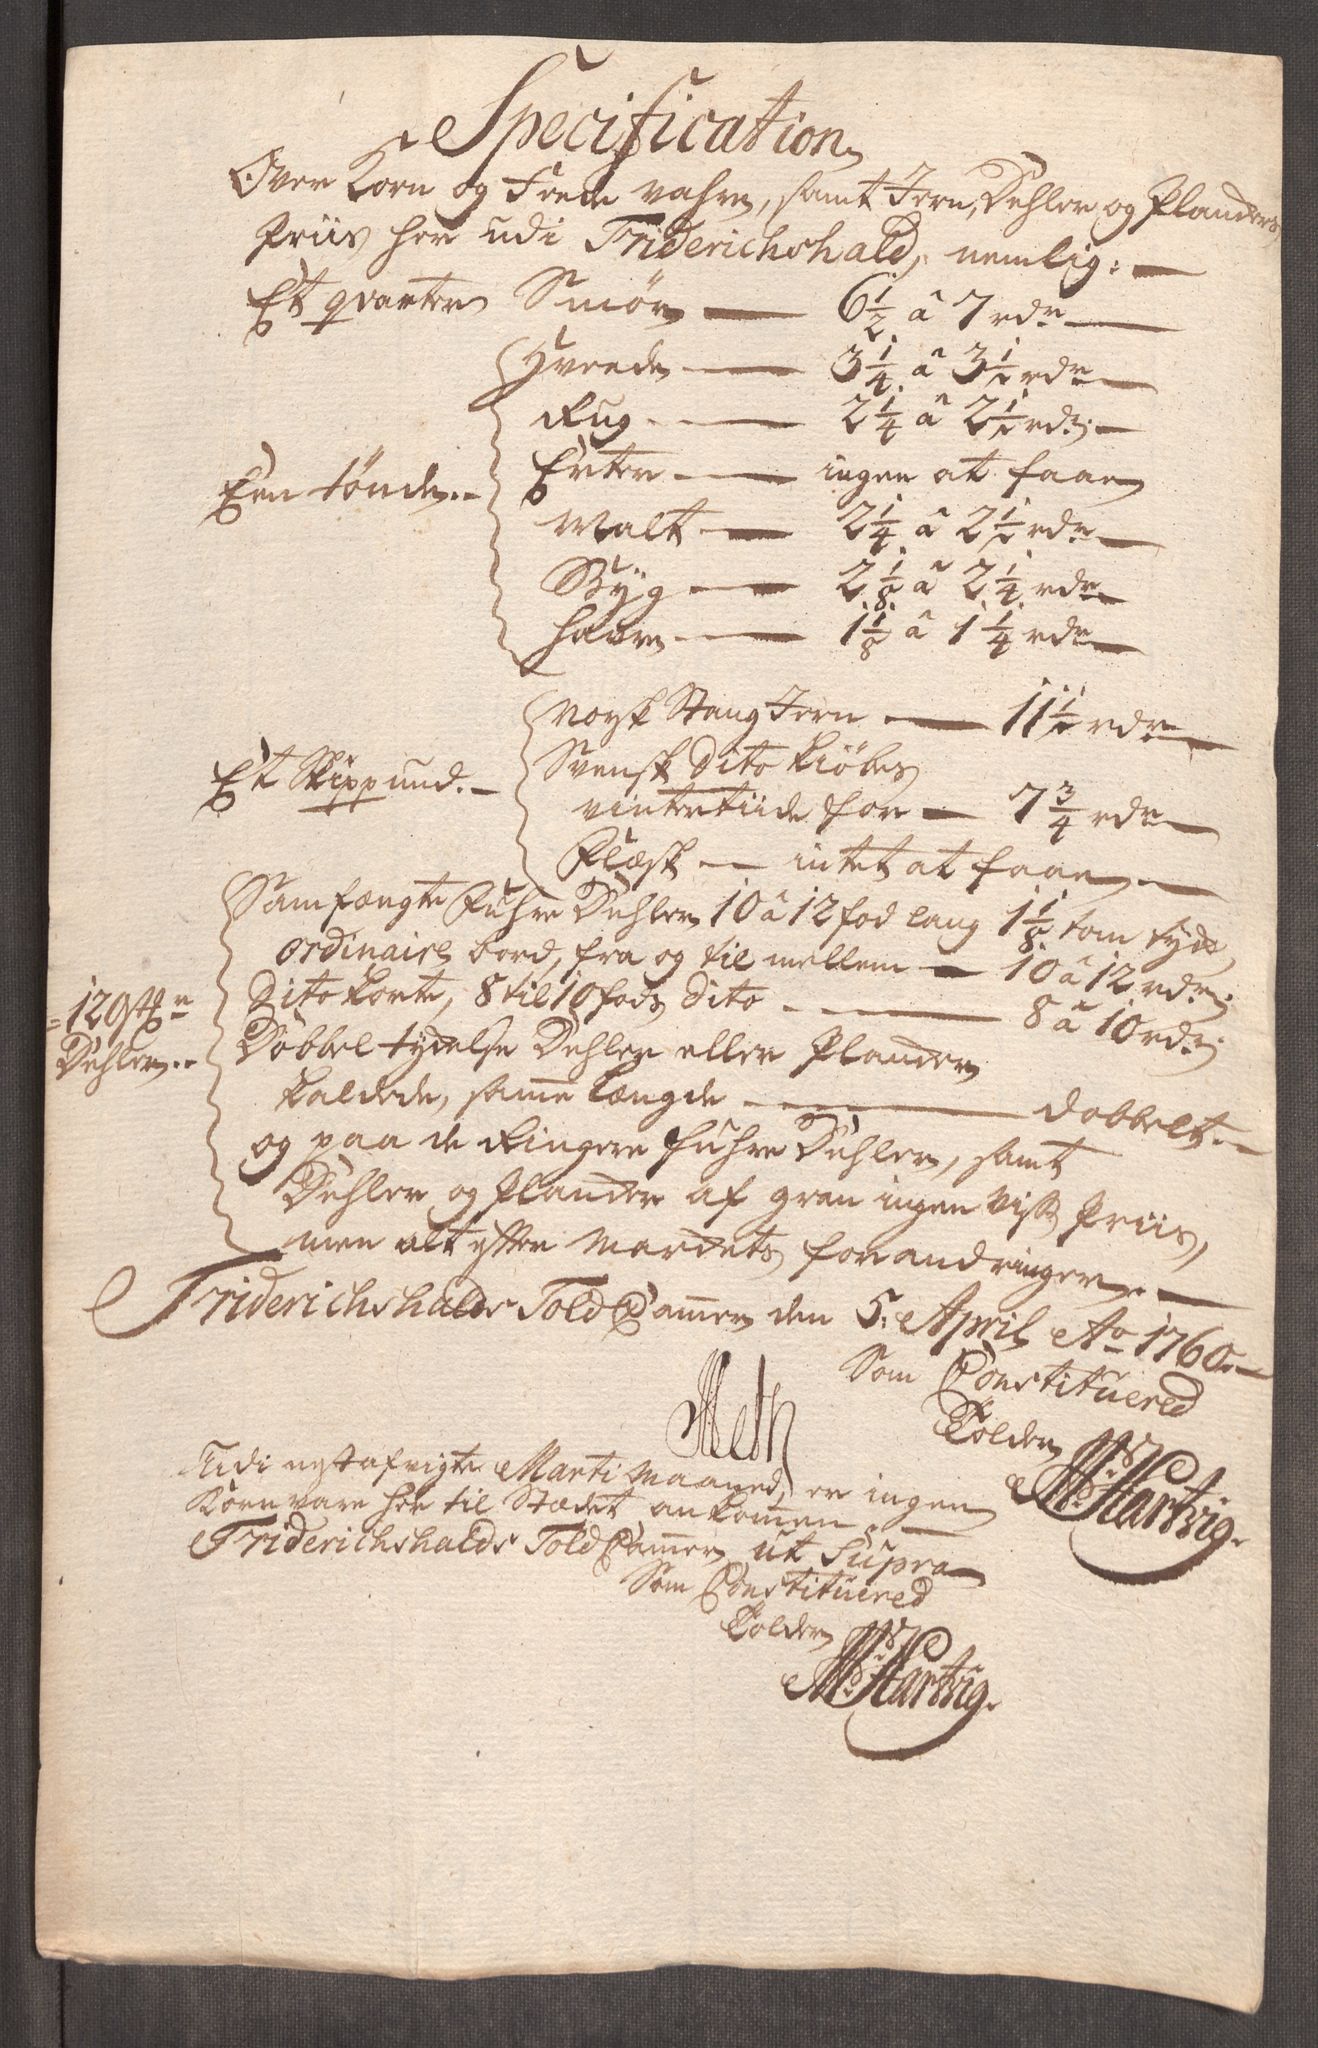 Specification
Over Korn og Feede vahre, samt Jern, Dehler og Planckers
Priis her udi Friderichshald, nemlig: —
Et qvarter Smør — 6 1/2 â 7 rdr —
Hveede — 3 1/4 â 3 1/2 rdr —
Rug — 2 1/4 â 2 1/2 rdr —
Een tønde.- Erter — ingen at faae
Malt — 2 1/4 â 2 1/2 rdr —
Byg — 2 1/8 â 2 1/4 rdr —
hafre — 1 1/8 â 1 1/4 rdr —
Norsk Stang Jern — 11 1/2 rdr —
Svensk dito kiøbes
Et Skippund.- vintertiide for — 7 3/4 rdr —
Flæsk — intet at faae —
Samfængte Fuhre Dehler 10 â 12 fod lang 1 1/8 tom tyck,
ordinaire bord, fra og til mellem — 10 â 12 rdr;
= 120 st.
Dehler.- dito korte, 8 til 10 fods dito — 8 â 10 rdr;
Dobbel tyckelse Dehler eller Plancker
kaldede, samme Længde — dobbelt. -
og paa de Ringere fuhre Dehler, samt
Dehler og Plancker af gran ingen viss Priis,
men alt efter Marckets forandringer. —
Friderichshalds Told Cammer den 5. April Ao 1760. —
Som Constituered
Tolder
Meth
M: Hartvig.
Udi nestafvigte Marti Maaned, er ingen
Kornvare her til Stædet ankommen. —
Friderichshalds Told Cammer ut Supra
Som Constituered
Tolder
M: Hartvig.